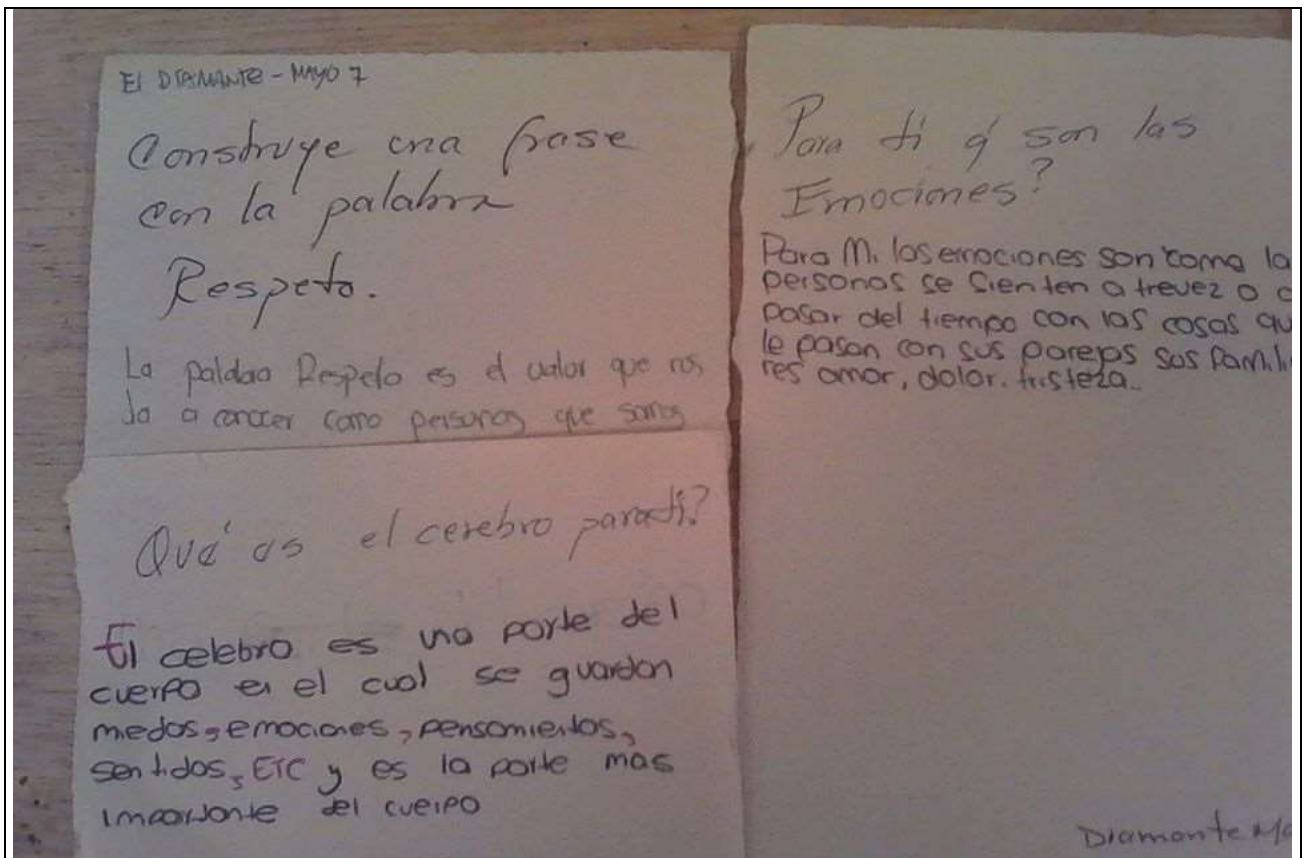 El DIAMANTE - MAYO 7
Construye una frase
con la palabra
Respeto.
La palabra Respeto es el valor que nos
da a conocer como personas que somos
Qué es el cerebro para ti?
El celebro es una parte del
cuerpo en el cual se guardan
miedos, emociones, pensamientos,
sentidos, ETC y es la parte mas
importante del cuerpo
Para ti q' son las
Emociones?
Para Mi las emociones son como la
personas se sienten a trevez o a
pasar del tiempo con las cosas qu
le pasan con sus parejas sus famili
res amor, dolor. tristeza..
Diamante Ma